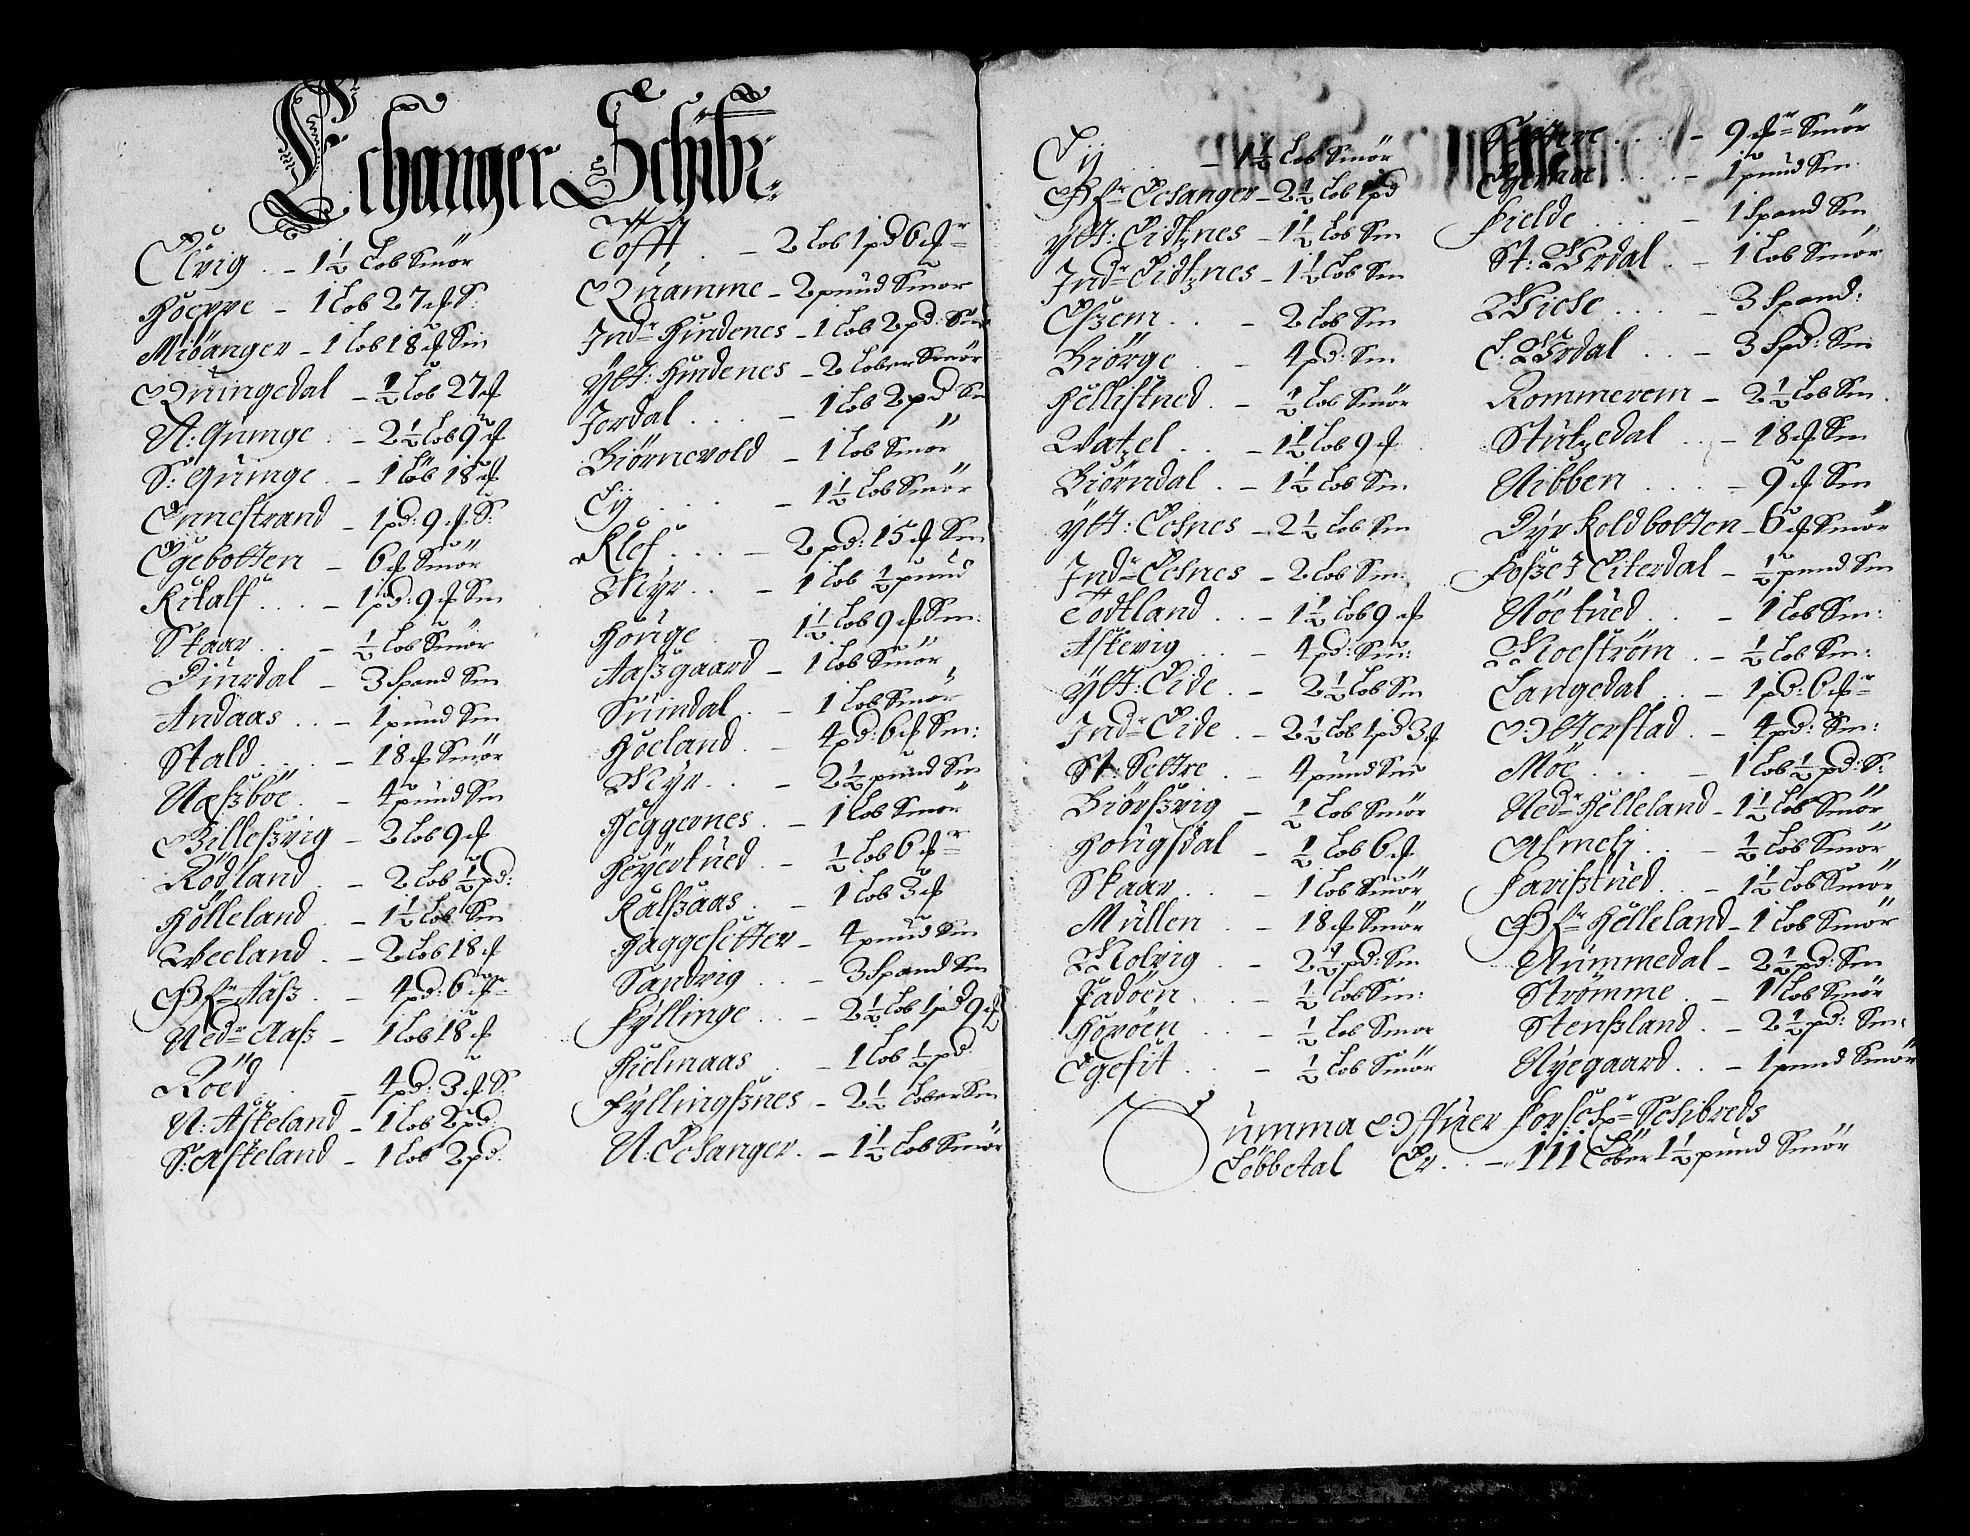 Echanger Schibr:
Elvig . . – 1½ Løb Smör
Hoeppe – 1 Løb 27 ℔ S:
Midanger – 1 Løb 18 ℔ Sm
Quingedal – ½ Løb 27 ℔
N: Quinge . – 2½ Løb 9 ℔
S: Quinge . – 1 Löb 18 ℔
Ennestrand – 1 pd: 9 ℔ S:
Egebotten – 6 ℔ Smör
Kikalf . . . – 1 pd: 9 ℔ Sm
Skaar . . – ½ Løb Smör
Diurdal – 3 Spand Sm
Andaas . . – 1 pund Sm
Stald . . . – 18 ℔ Smör
Næszböe . – 4 pund Sm
Billeszvig – 2 Løb 9 ℔
Rödland . – 2 Løb ½ pd:
Hölleland . – 1½ Løb Sm
Weeland . – 2 Løb 18 ℔
Øfr Aasz . – 4 pd: 6 ℔
Nedr Aasz – 1 Løb 18 ℔
Röed . . – 4 pd: 3 ℔ S:
N: Askeland – 1 Løb 2 pd:
S: Askeland – 1 Løb 2 pd.
Tofft . – 2 Løb 1 pd 6 ℔
Quamme – 2 pund Smør
Indr Hindenes – 1 Løb 2 pd: Sm
Ytt: Hindenes – 2 Løber Smör
Jordal . . . – 1 Løb 2 pd Sm
Biörnevold – 1 Løb Smör
Eÿ . . . . – 1½ Løb Smör
Klef . . . – 2 pd: 15 ℔ Sm
Myr . . – 1 Løb ½ pund
Honge . 1½ Løb 9 ℔ Sm:
Aaszgaard – 1 Løb Smör
Sundal . – 1 Løb Smör
Hoeland . – 4 pd: 6 ℔ Sm:
Myr . . – 2½ pund Sm
Heggernes . – 1 Løb Smör
Heyertued . – ½ Løb 6 ℔
Kalszaas . – 1 Løb 3 ℔
Haggesetter – 4 pund Sm
Sandvig . . – 3 Spand Sm
Fyllinge . . – 2½ Løb 1 pd 9 ℔
Hielmaas . – 1 Løb ½ pd
Fyllingsznes – 2½ Løber Sm
N: Echanger . – 1½ Løb Smör
Eÿ . . – 1½ Løb Smör
Øfr Echanger – 2½ Løb 1 pd
Ytt: Eidtznes – 1½ Løb Sm
Indr Eidtznes – 1½ Løb Sm
Eszem . . – 2 Løb Sm
Biörge . – 4 pd: Sm
Hellistued . – ½ Løb Smör
Watzel . . – 1½ Løb 9 ℔
Biörndal . – 1½ Løb Sm
Ytt: Echnes – 2½ Løb Sm
Indr Echnes – 2 Løb Sm:
Todtland . . – 1½ Løb 9 ℔
Askevig . . – 4 pd: Sm:
Ytt: Eide . – 2½ Løb Sm
Indr Eide . – 2½ Løb 1 pd 3 ℔
St: Settre . – 4 pund Sm
Biörszvig – ½ Løb Smör
Hougsdal – ½ Løb 6 ℔
Skaar . . – 1 Løb Smör
Müllen . – 18 ℔ Smör
Molvig . – 2½ pd: Sm
Fadöen . . – ½ Løb Sm:
Horöen . . – ½ Løb Smor
Egesit . . – ½ Løb Smör
Settere . . . – 9 ℔ Smör
. . . – 1 pund Sm
Fielde . . . – 1 Spand Sm
St: Urdal . – 1 Løb Smör
Wiche . . . – 3 Spand:
L: Urdal . . – 3 Spd: Sm
Rommerem – 2½ Løb Sm.
Stützedal . . – 18 ℔ Sm
Nibben . . . – 9 ℔ Sm
Dyrkoldbotten – 6 ℔ Smör
Fosze i Eiterdal – ½ pund Sm
Nöetued . . – 1 Løb Sm:
Moeström . – ½ Løb Sm:
Langedal . . – 1 pd: 6 ℔
Otterstad . – 4 pd: Sm:
Möe . . . – 1 Løb ½ pd: S:
Nedr Helleland – 1½ Løb Smör
Asmeli . . – ½ Løb Smör
Farisztued . – 1½ Løb Smör
Øfr Helleland – 1 Løb Smör
Nummedal – 2½ pd: Sm
Strömme . – 1 Løb Smör
Stenszland . – 2½ pd: Sm:
Nyegaard . . – 1 pund Smör
Summa Offuer Forschr: Schibreds
Löbbetal Er . . – 111 Löber 1½ pund Smör